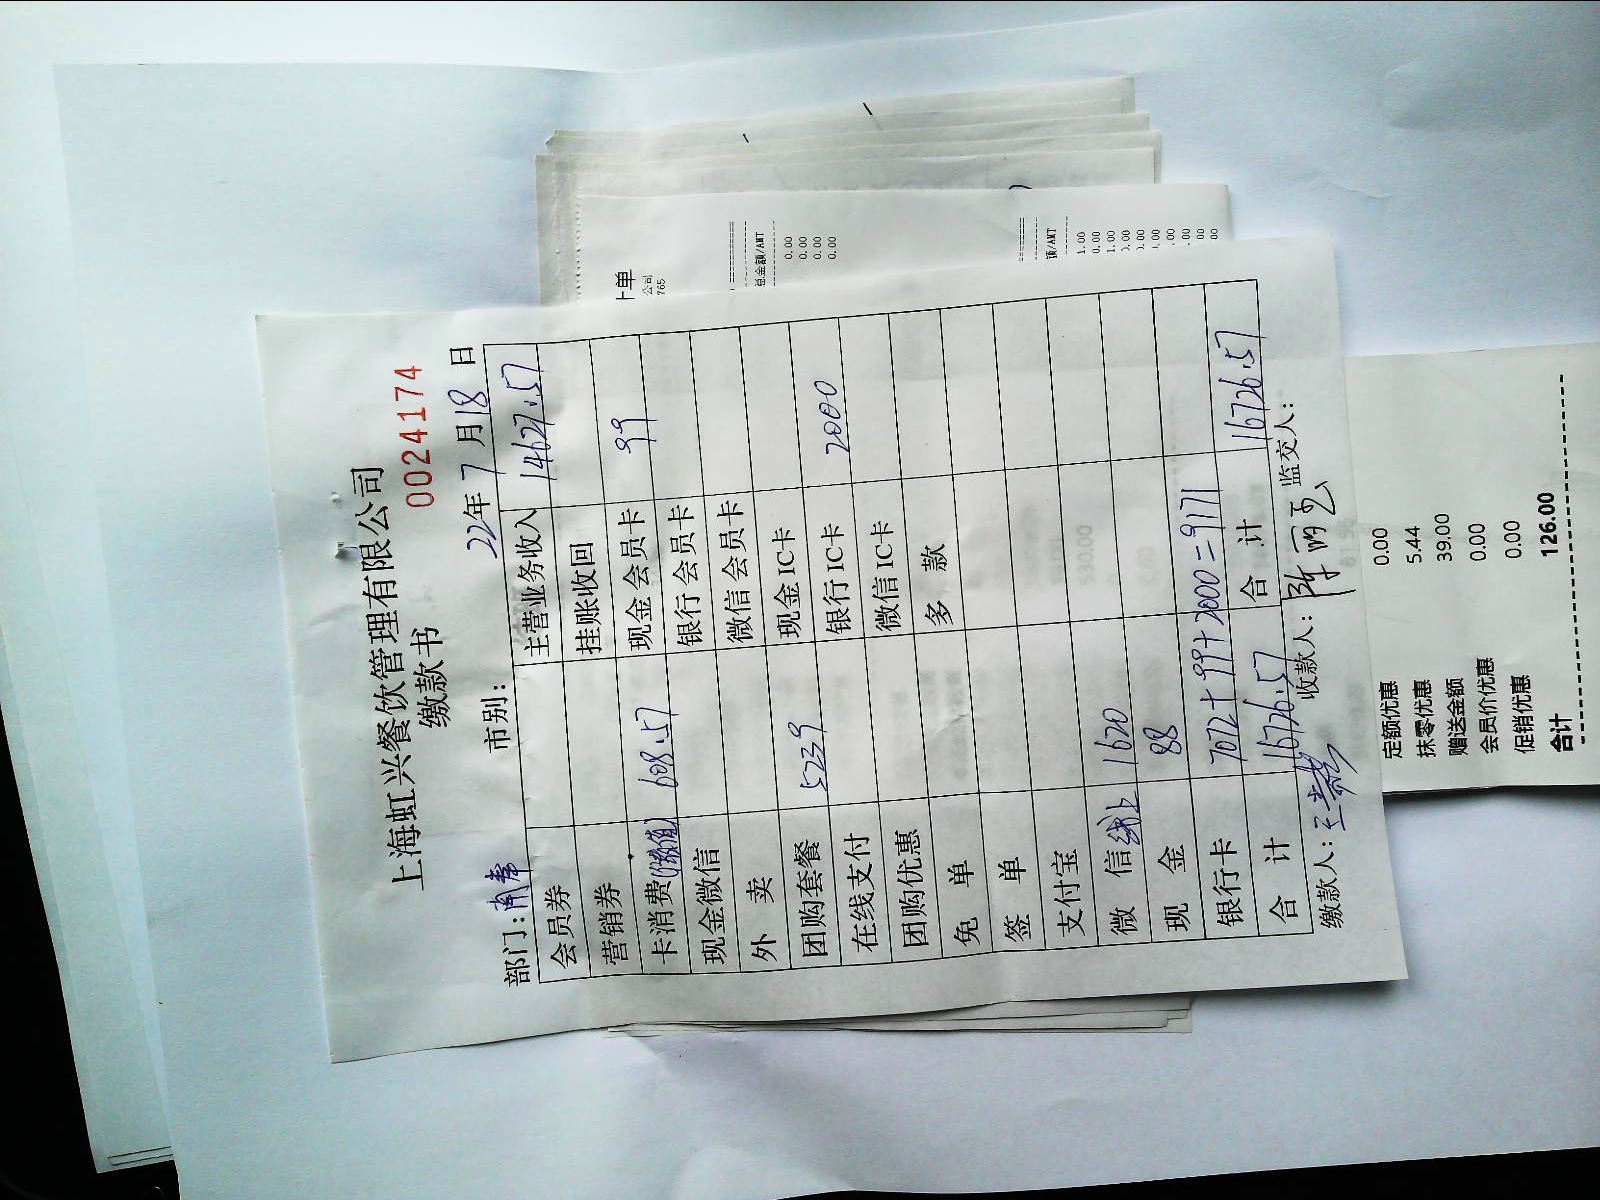 上海虹兴餐饮管理有限公司
缴款书 0024174
部门: 市别: 22年7月18日
会员券 主营业务收入 14627.57
营销券 挂账收回
卡消费 608.57 现金会员卡 99
现金微信 银行会员卡
外 卖 微信会员卡
团购套餐 5239 现金IC卡
在线支付 银行IC卡 2000
团购优惠 微信IC卡
免 单 多 款
签 单
支付宝
微 信 线上 1620
现 金 88
银行卡 7072+99+2000=9171
合 计 16726.57 合 计 16726.57
缴款人: 收款人: 监交人:
卡单
公司
765
总金额/AMT
0.00
0.00
0.00
0.00
额/AMT
1.00
0.00
1.00
0.00
0.00
0.00
0.00
0.00
0.00
0.00
定额优惠 0.00
抹零优惠 5.44
赠送金额 39.00
会员价优惠 0.00
促销优惠 0.00
合计 126.00